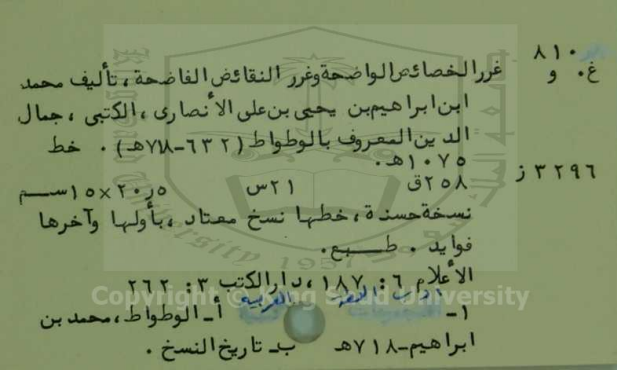 ٨١٠
غ. و غرر الخصائص الواضحة وغرر النقائض الفاضحة ، تأليف محمد
ابن ابراهيم بن يحيى بن على الأنصارى ، الكتبى ، جمال
الدين المعروف بالوطواط (٦٣٢-٧١٨هـ) . خط
١٠٧٥هـ.
٣٢٩٦ ز
٢٥٨ق ٢١س ٢٠٫٥×١٥سم
نسخة حسنة ، خطها نسخ معتاد ، بأولها وآخرها
فوايد . طبع.
الأعلام ٦: ١٨٧ ، دار الكتب ٣: ٢٦٢
Copyright © King Saud University
١- أ - الوطواط ، محمد بن
ابراهيم-٧١٨هـ ب- تاريخ النسخ .